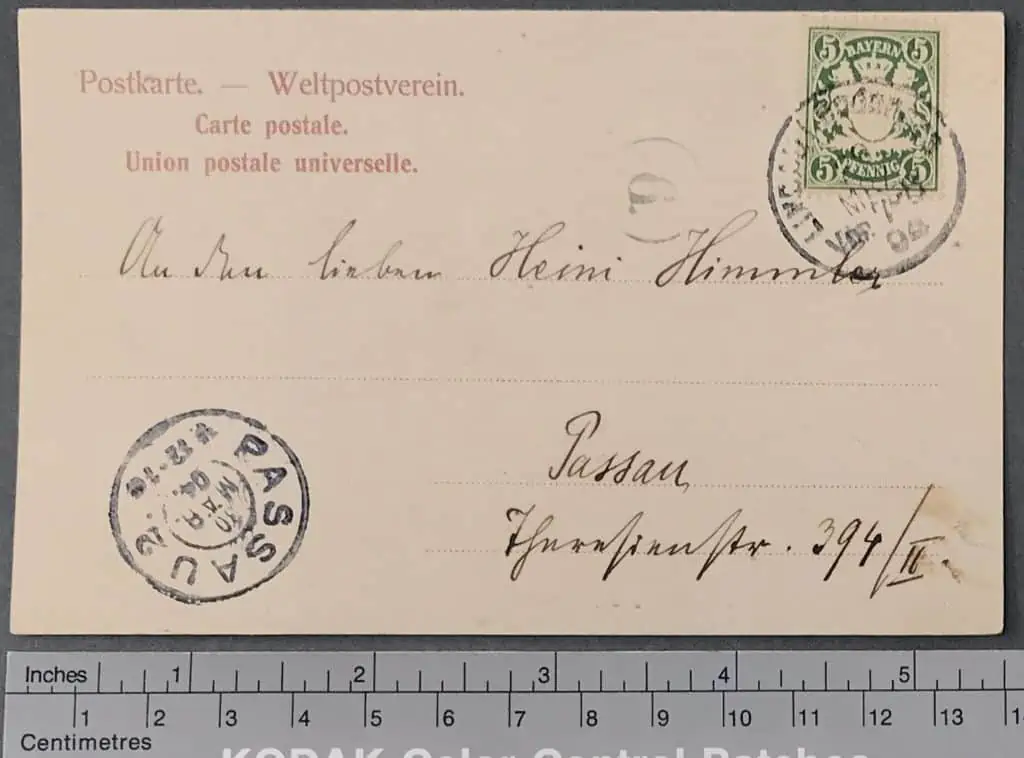 Postkarte. — Weltpostverein.
Carte postale.
Union postale universelle.
5 BAYERN 5
5 PFENNIG 5
G.
An den lieben Heini Himmler
Passau
Theresienstr. 394/II.
PASSAU 2.
MAR.
04
Inches 1 2 3 4 5
1 2 3 4 5 6 7 8 9 10 11 12 13
Centimetres
KODAK Color Control Patches